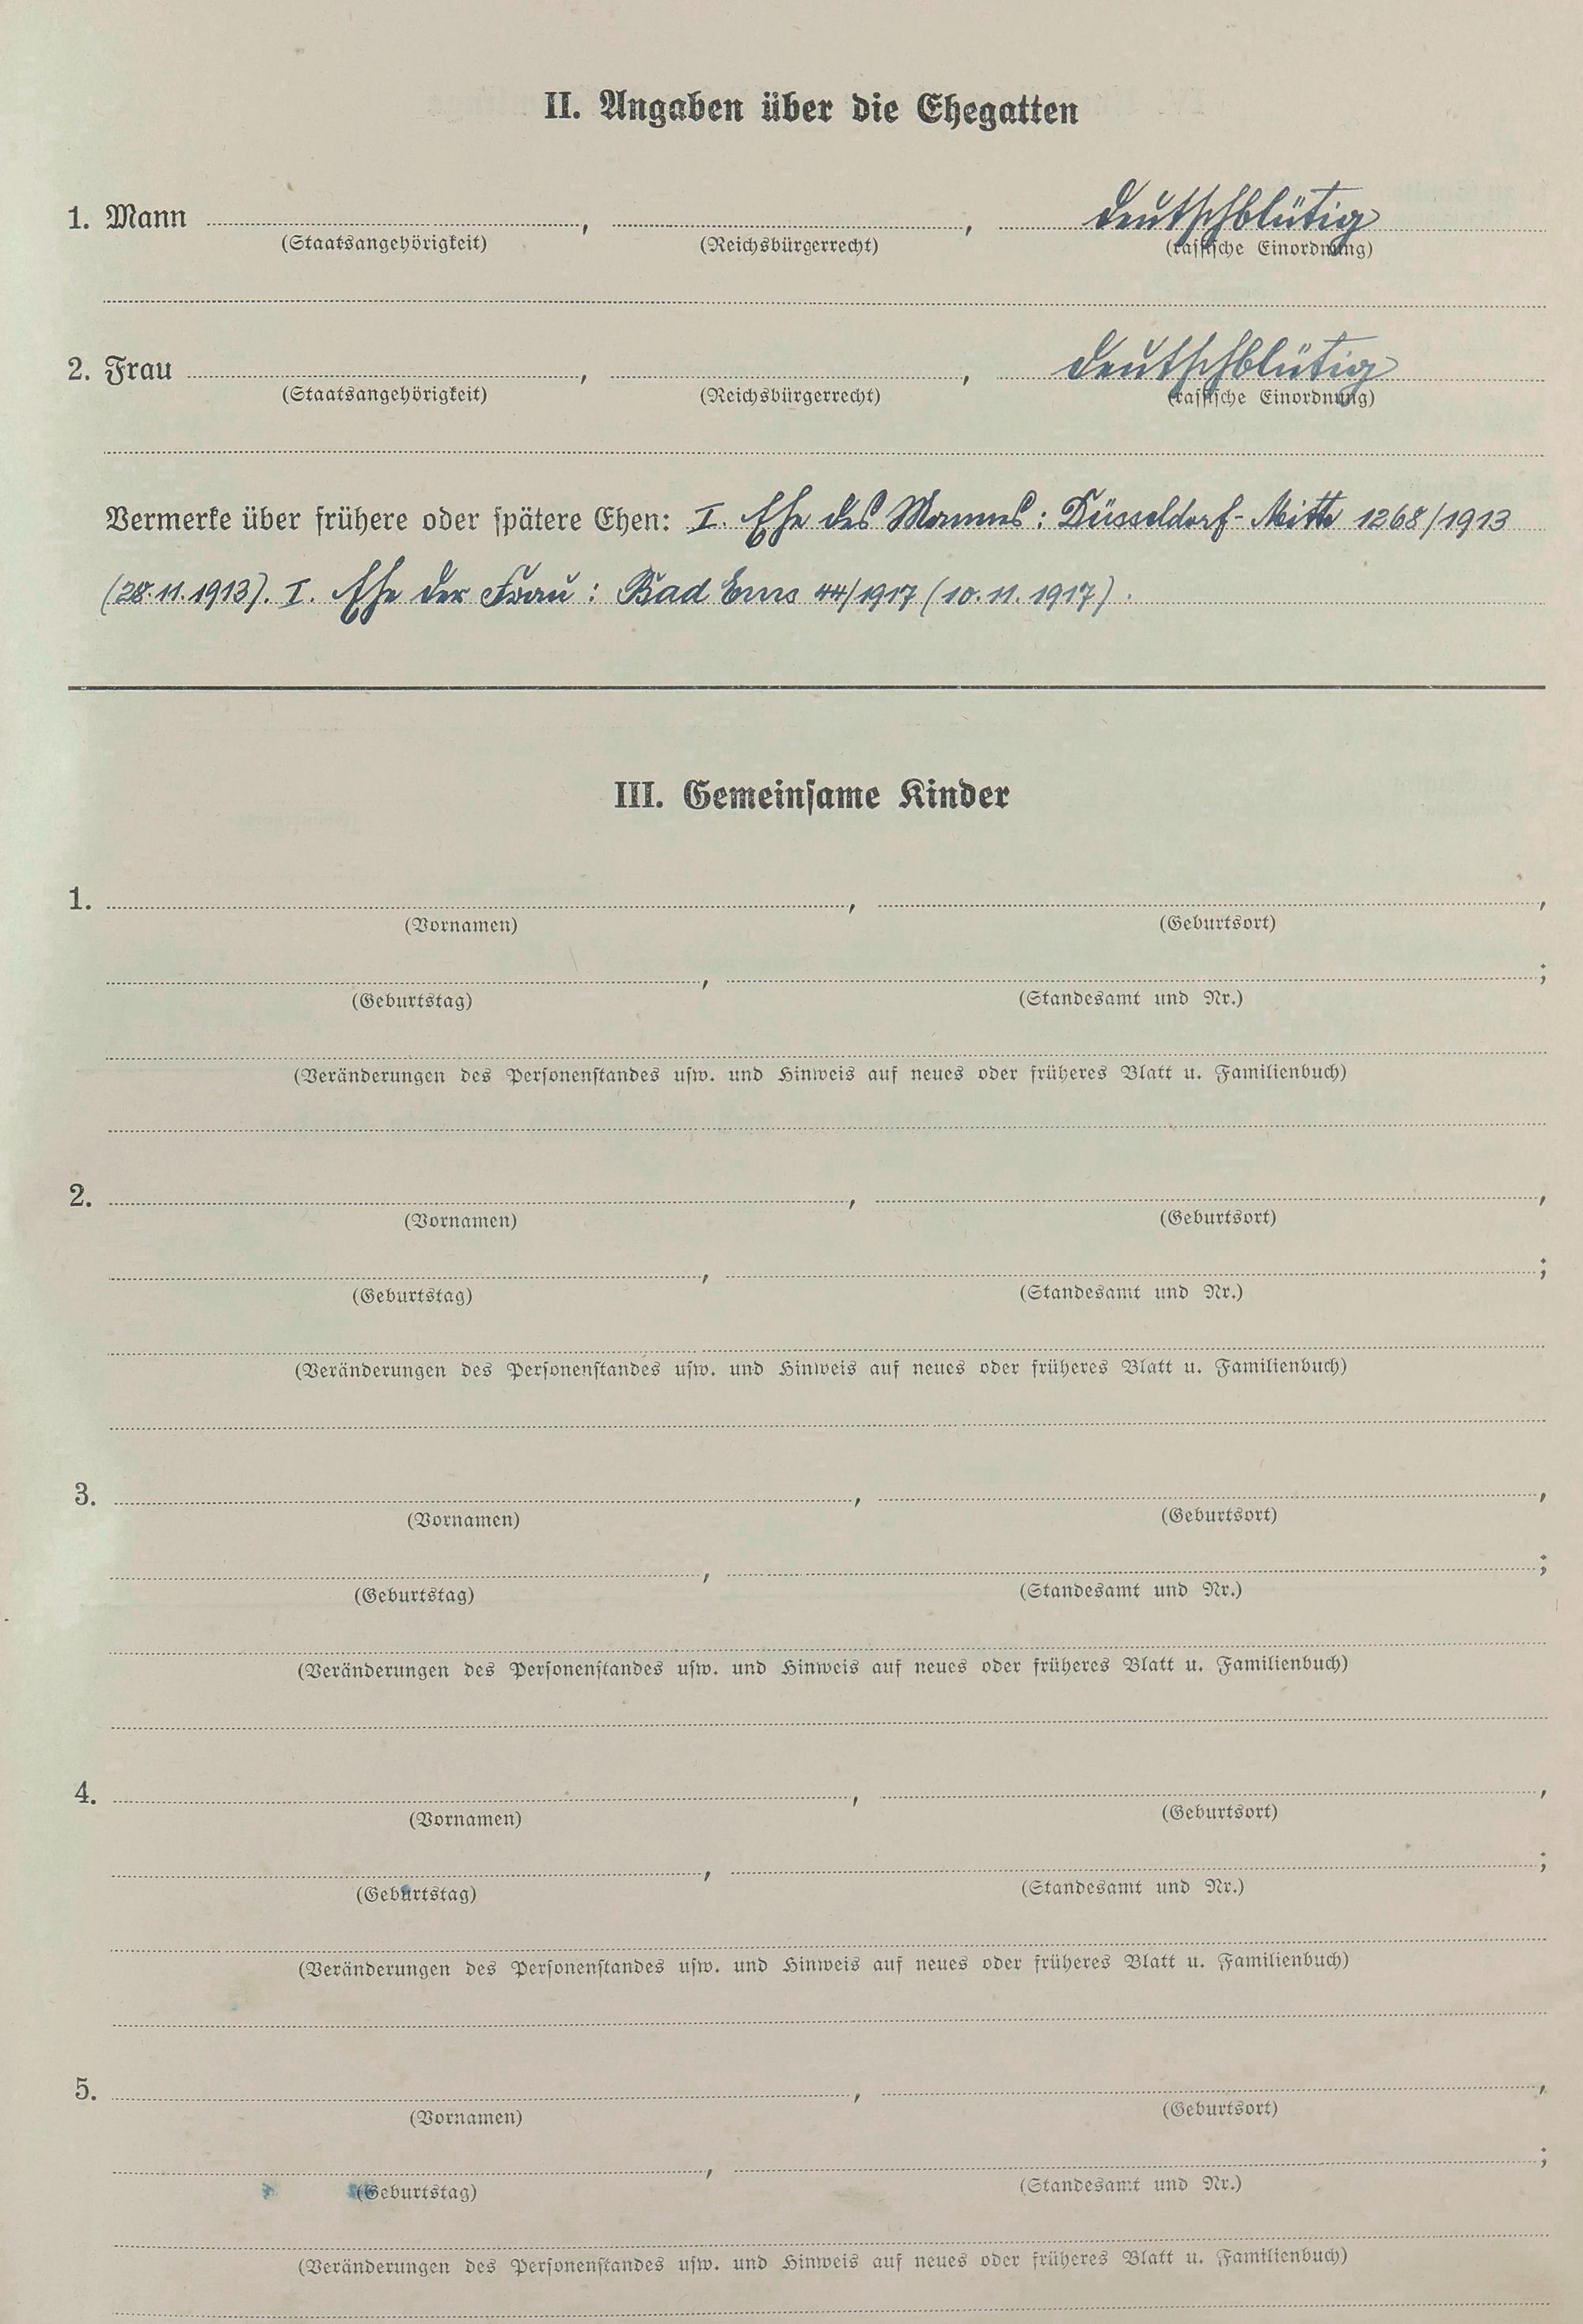 II. Angaben über die Ehegatten
1. Mann , , deutschblütig
(Staatsangehörigkeit) (Reichsbürgerrecht) (rassische Einordnung)
2. Frau , , deutschblütig
(Staatsangehörigkeit) (Reichsbürgerrecht) (rassische Einordnung)
Vermerke über frühere oder spätere Ehen: I. Ehe des Mannes: Düsseldorf-Mitte 1268/1913
(28.11.1913). I. Ehe der Frau: Bad Ems 44/1917 (10.11.1917).
III. Gemeinsame Kinder
1. , ,
(Vornamen) (Geburtsort)
, ;
(Geburtstag) (Standesamt und Nr.)
(Veränderungen des Personenstandes usw. und Hinweis auf neues oder früheres Blatt u. Familienbuch)
2. , ,
(Vornamen) (Geburtsort)
, ;
(Geburtstag) (Standesamt und Nr.)
(Veränderungen des Personenstandes usw. und Hinweis auf neues oder früheres Blatt u. Familienbuch)
3. , ,
(Vornamen) (Geburtsort)
, ;
(Geburtstag) (Standesamt und Nr.)
(Veränderungen des Personenstandes usw. und Hinweis auf neues oder früheres Blatt u. Familienbuch)
4. , ,
(Vornamen) (Geburtsort)
, ;
(Geburtstag) (Standesamt und Nr.)
(Veränderungen des Personenstandes usw. und Hinweis auf neues oder früheres Blatt u. Familienbuch)
5. , ,
(Vornamen) (Geburtsort)
, ;
(Geburtstag) (Standesamt und Nr.)
(Veränderungen des Personenstandes usw. und Hinweis auf neues oder früheres Blatt u. Familienbuch)